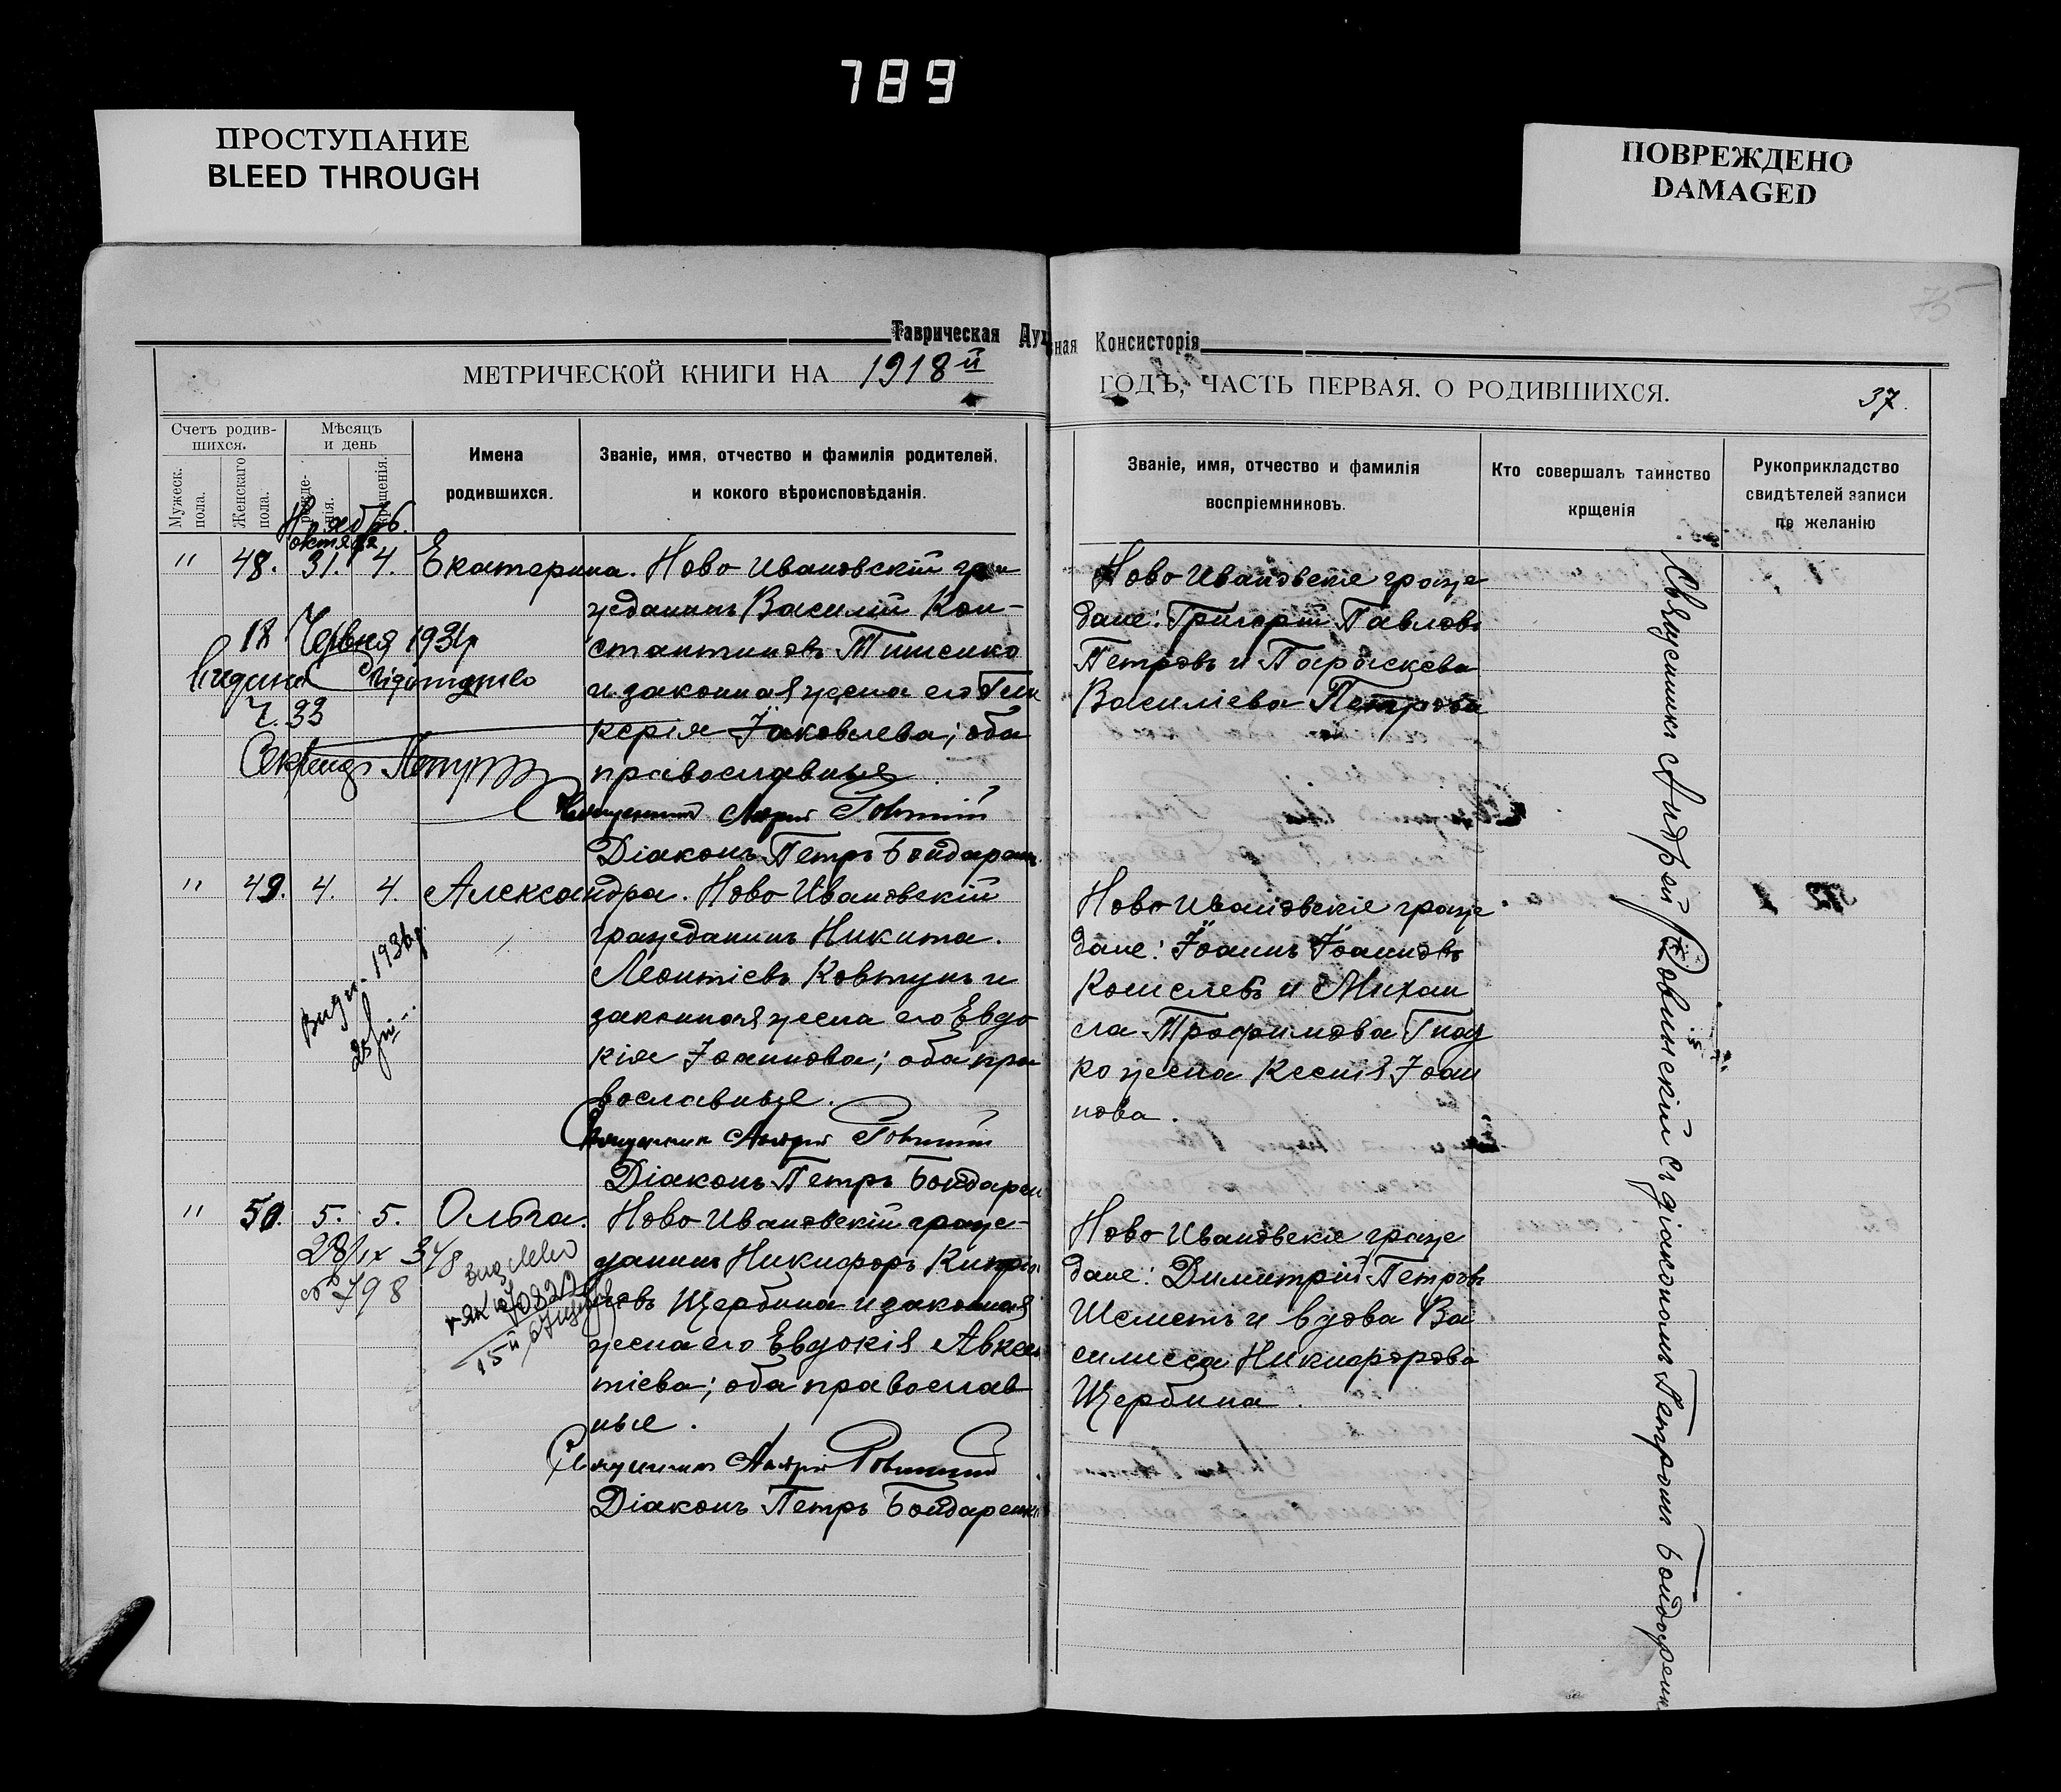 789
ПРОСТУПАНИЕ
BLEED THROUGH
ПОВРЕЖДЕНО
DAMAGED
75
Таврическая Духовная Консисторія
МЕТРИЧЕСКОЙ КНИГИ НА 1918й
ГОДЪ, ЧАСТЬ ПЕРВАЯ. О РОДИВШИХСЯ.
37.
Счетъ родив-
шихся.
Мужеск.
пола.
Женскаго
пола.
Мѣсяцъ
и день
рожде-
нія.
крещенія.
Имена
родившихся.
Званіе, имя, отчество и фамилія родителей,
и кокого вѣроисповѣданія.
Званіе, имя, отчество и фамилія
воспріемниковъ.
Кто совершалъ таинство
крщенія
Рукоприкладство
свидѣтелей записи
по желанію
Ноябрь.
октября
" 48. 31. 4. Екатерина. Ново Ивановскій гра
жданинъ Василій Кон-
стантиновъ Тишенко
и законная жена его Гли
керія Іаковлева; оба
православные
Священникъ Андрей Ровинскій
Діаконъ Петръ Бондарен
18 Червня 1934р
Ч. 33
Ново Ивановскіе граж
дане: Григорій Павловъ
Петровъ и Параскева
Василіева Петрова
" 49. 4. 4. Александра. Ново Ивановскій
гражданинъ Никита
Леонтіевъ Ковтунъ и
законная жена его Евдо
кія Іоаннова; оба пра
вославные.
Священник Андрей Ровинскій
Діаконъ Петръ Бондарен
1936р.
Ново Ивановскіе граж
дане: Іоаннъ Іоанновъ
Кошелевъ и Михаи
ла Трофимова Гнад
ко жена Ксенія Іоан
нова.
" 50. 5. 5. Ольга. Ново Ивановскій граж-
данинъ Никифоръ Кипріа
новъ Щербина и законная
жена его Евдокія Авксен
тіева; оба православ
ные.
Священникъ Андрей Ровинскій
Діаконъ Петръ Бондаренко
28/IX 37
№ 798
Ново Ивановскіе граж
дане: Димитрій Петровъ
Шеметъ и вдова Ва
силисса Никифорова
Щербина.
Священникъ Андрей Ровинскій съ діакономъ Петромъ Бондаренк